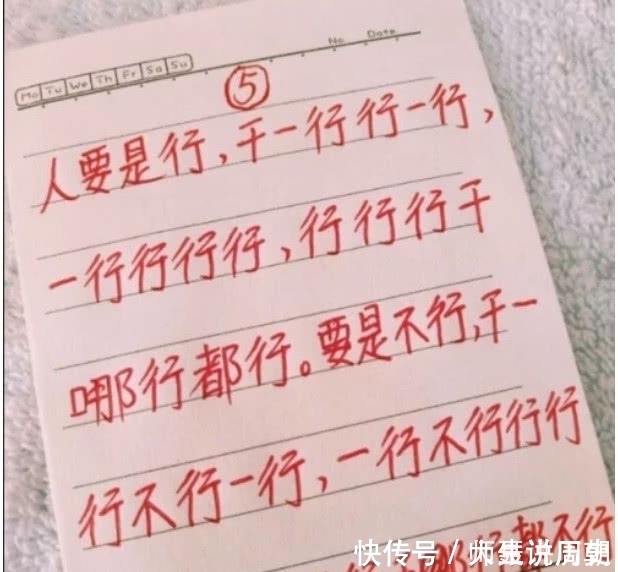 No Date
Mo Tu We Th Fr Sa Su
⑤
人要是行，干一行行一行，
一行行行行，行行行干
哪行都行。要是不行，干一
行不行一行，一行不行行行
哪行都不行
快传号 /